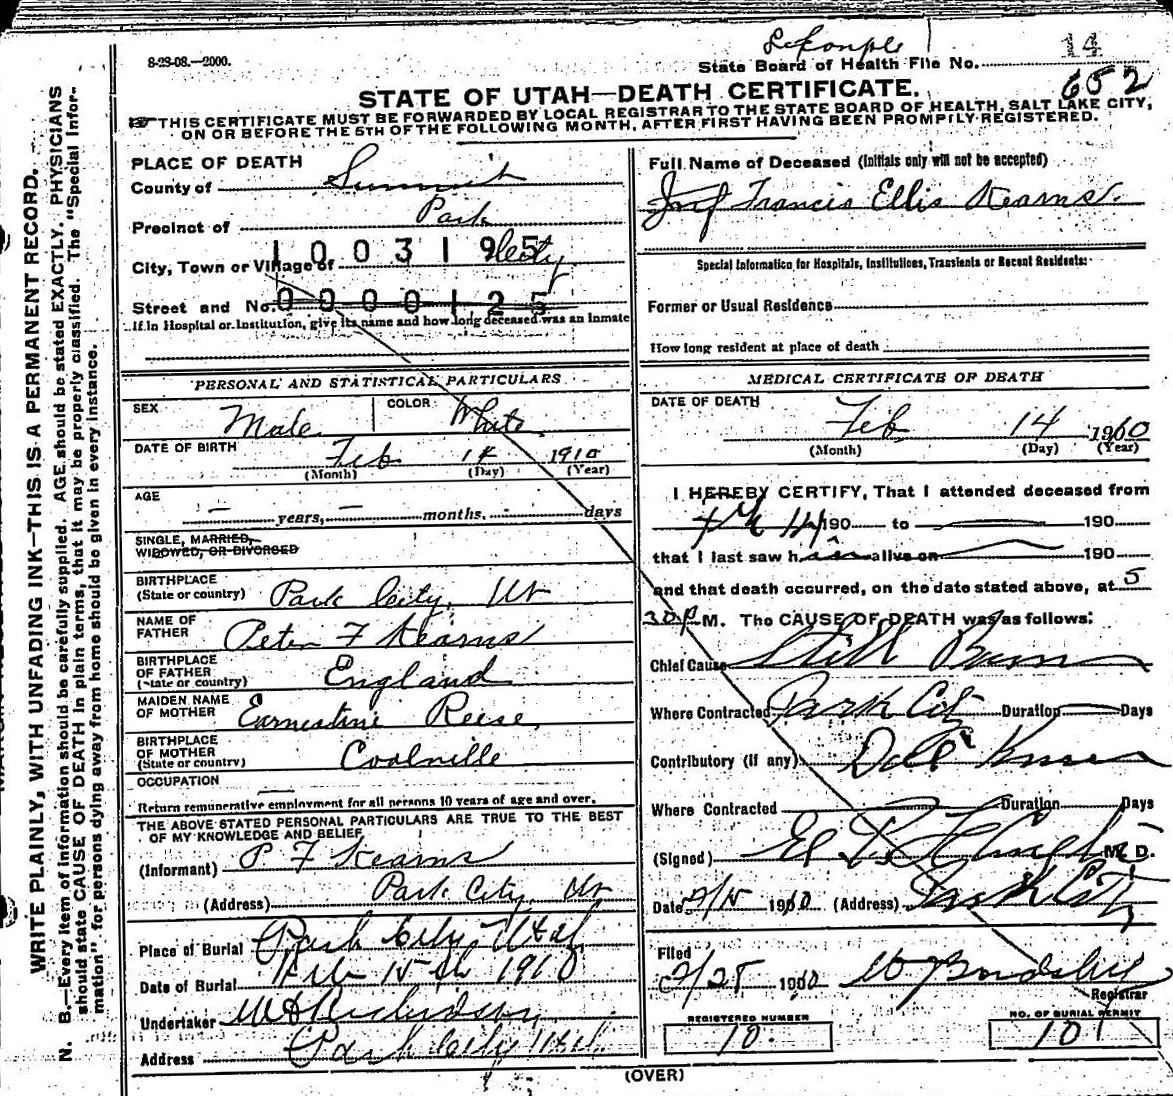 8-23-08.—2000.
14
State Board of Health File No.
652
STATE OF UTAH—DEATH CERTIFICATE.
THIS CERTIFICATE MUST BE FORWARDED BY LOCAL REGISTRAR TO THE STATE BOARD OF HEALTH, SALT LAKE CITY,
ON OR BEFORE THE 5TH OF THE FOLLOWING MONTH, AFTER FIRST HAVING BEEN PROMPILY REGISTERED.
WRITE PLAINLY, WITH UNFADING INK—THIS IS A PERMANENT RECORD.
N. B.—Every item of information should be carefully supplied. AGE should be stated EXACTLY. PHYSICIANS
should state CAUSE OF DEATH in plain terms, that it may be properly classified. The "Special Infor-
mation" for persons dying away from home should be given in every instance.
PLACE OF DEATH
County of Summit
Precinct of Park
1003195
City, Town or Village of City
Street and No. 0000125
If in Hospital or Institution, give its name and how long deceased was an inmate
PERSONAL AND STATISTICAL PARTICULARS
SEX Male COLOR White
DATE OF BIRTH Feb 14 1910
(Month) (Day) (Year)
AGE
— years, — months, - days
SINGLE, MARRIED,
WIDOWED, OR DIVORCED
BIRTHPLACE
(State or country) Park City, Ut
NAME OF
FATHER Peter F Kearns
BIRTHPLACE
OF FATHER
(State or country) England
MAIDEN NAME
OF MOTHER Earnestine Reese
BIRTHPLACE
OF MOTHER
(State or country) Coalville
OCCUPATION
Return remunerative employment for all persons 10 years of age and over.
THE ABOVE STATED PERSONAL PARTICULARS ARE TRUE TO THE BEST
OF MY KNOWLEDGE AND BELIEF
(Informant) P F Kearns
(Address) Park City, Ut
Place of Burial Park City, Utah
Date of Burial Feb 15th 1910
Undertaker W D Richardson
Address Park City Utah
Full Name of Deceased (Initials only will not be accepted)
Inf Francis Ellis Kearns.
Special Information for Hospitals, Institutions, Transients or Recent Residents:
Former or Usual Residence
How long resident at place of death
MEDICAL CERTIFICATE OF DEATH
DATE OF DEATH
Feb 14 1910
(Month) (Day) (Year)
I HEREBY CERTIFY, That I attended deceased from
190 to 190
that I last saw h alive on 190
and that death occurred, on the date stated above, at 5
30 P M. The CAUSE OF DEATH was as follows:
Chief Cause Still Born
Where Contracted Park City Duration Days
Contributory (if any)
Where Contracted Duration Days
(Signed) M. D.
Date 2/15 1910 (Address) Park City
Filed
2/25 1910
Registrar
REGISTERED NUMBER
10
NO. OF BURIAL PERMIT
101
(OVER)